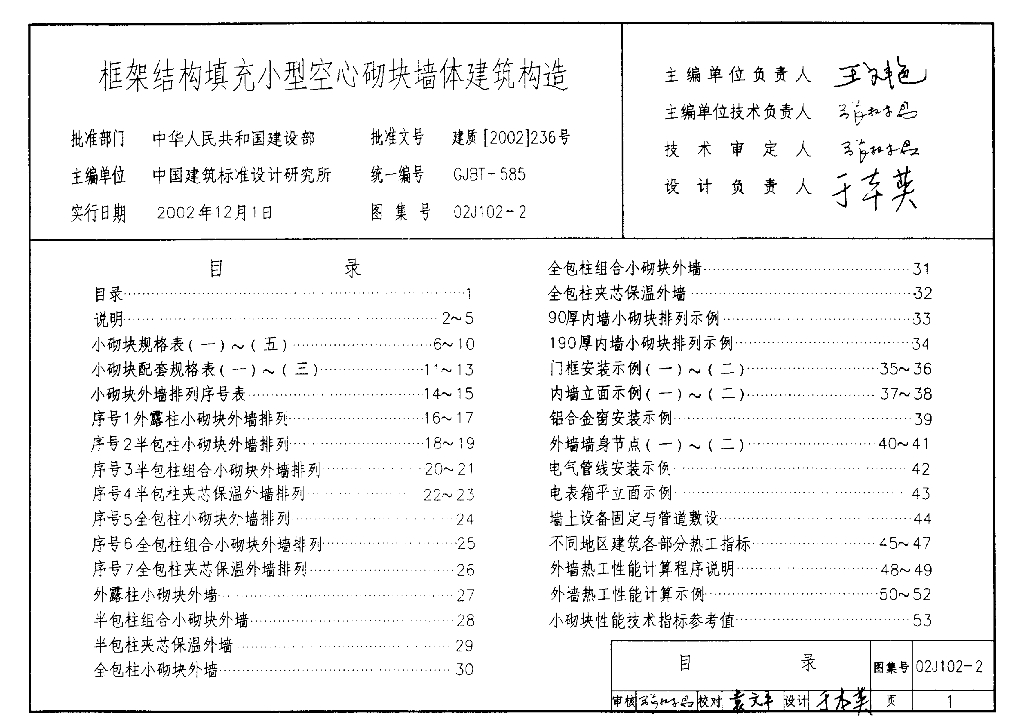 框架结构填充小型空心砌块墙体建筑构造
批准部门 中华人民共和国建设部 批准文号 建质[2002]236号
主编单位 中国建筑标准设计研究所 统一编号 GJBT-585
实行日期 2002年12月1日 图集号 02J102-2
主编单位负责人
主编单位技术负责人
技术审定人
设计负责人
目录
目录 1
说明 2~5
小砌块规格表(一)~(五) 6~10
小砌块配套规格表(一)~(三) 11~13
小砌块外墙排列序号表 14~15
序号1外露柱小砌块外墙排列 16~17
序号2半包柱小砌块外墙排列 18~19
序号3半包柱组合小砌块外墙排列 20~21
序号4半包柱夹芯保温外墙排列 22~23
序号5全包柱小砌块外墙排列 24
序号6全包柱组合小砌块外墙排列 25
序号7全包柱夹芯保温外墙排列 26
外露柱小砌块外墙 27
半包柱组合小砌块外墙 28
半包柱夹芯保温外墙 29
全包柱小砌块外墙 30
全包柱组合小砌块外墙 31
全包柱夹芯保温外墙 32
90厚内墙小砌块排列示例 33
190厚内墙小砌块排列示例 34
门框安装示例(一)~(二) 35~36
内墙立面示例(一)~(二) 37~38
铝合金窗安装示例 39
外墙墙身节点(一)~(二) 40~41
电气管线安装示例 42
电表箱平立面示例 43
墙上设备固定与管道敷设 44
不同地区建筑各部分热工指标 45~47
外墙热工性能计算程序说明 48~49
外墙热工性能计算示例 50~52
小砌块性能技术指标参考值 53
目录 图集号 02J102-2
审核 校对 设计 页 1